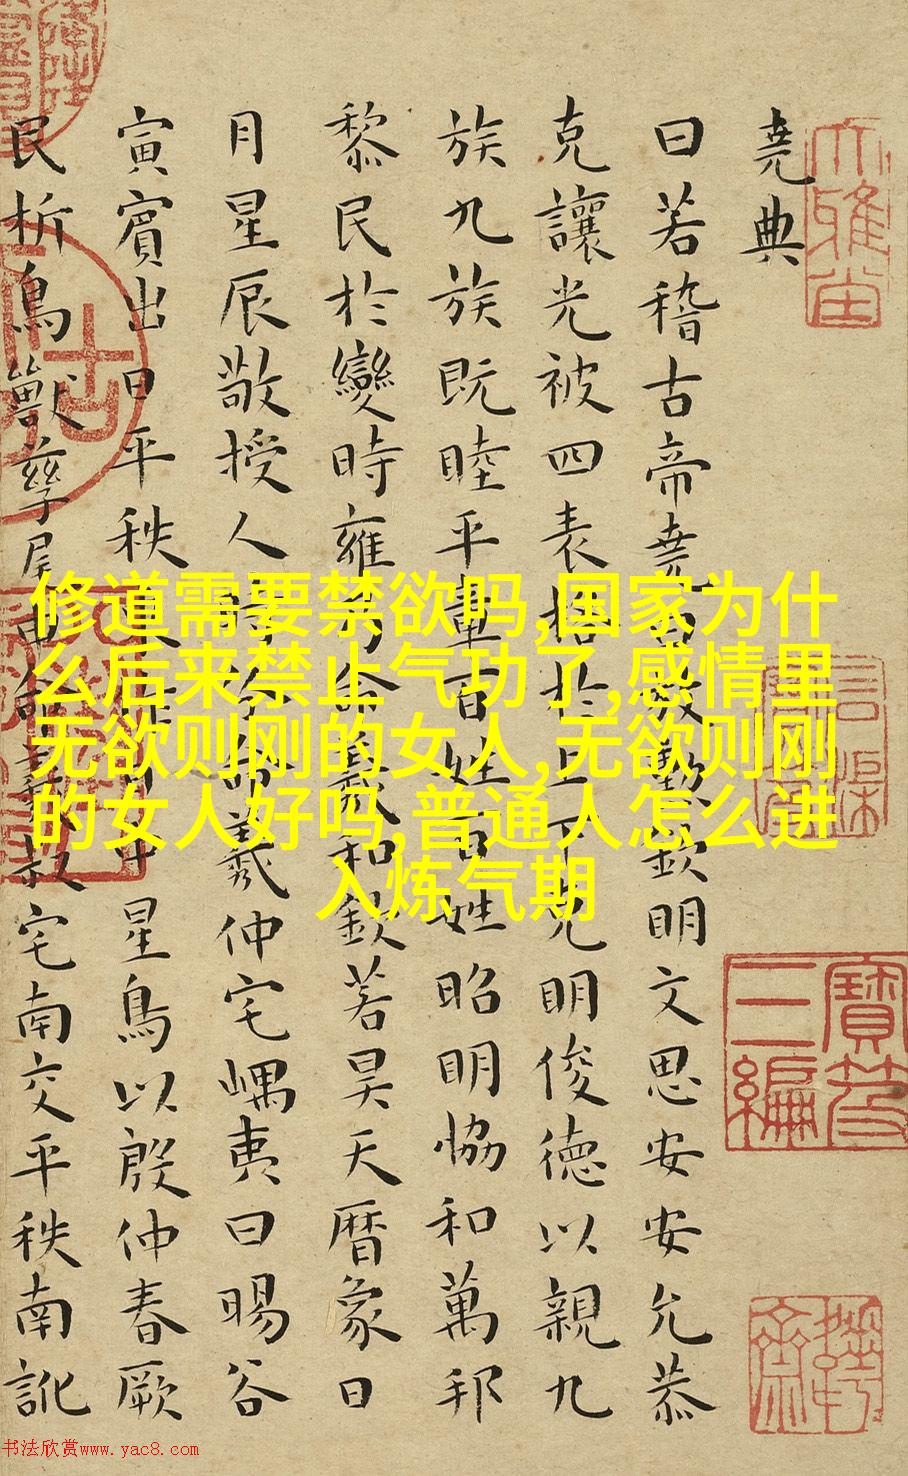 堯典
曰若稽古帝堯曰放勳欽明文思安安允恭
克讓光被四表格於上下克明俊德以親九
族九族既睦平章百姓百姓昭明恊和萬邦
黎民於變時雍乃命羲和欽若昊天曆象日
月星辰敬授人時分命羲仲宅嵎夷曰暘谷
寅賓出日平秩東作日中星鳥以殷仲春厥
民析鳥獸孳尾申命羲叔宅南交平秩南訛
修道需要禁欲吗,国家为什
么后来禁止气功了,感情里
无欲则刚的女人,无欲则刚
的女人好吗,普通人怎么进
入炼气期
寶笈
三編
书法欣赏www.yac8.com